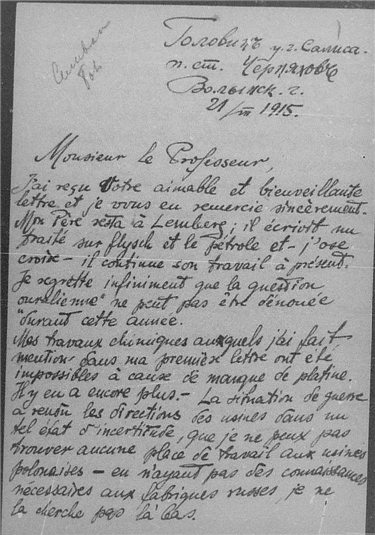 Головинъ у г. Салиса.
п. ст. Черняховъ
Волынск. г.
21/III 1915.
Monsieur le Professeur,
J'ai reçu Votre aimable et bienveillante
lettre et je vous en remercie sincèrement.
Mon Père resta à Lemberg; il écrivit un
traité sur flysch et le pétrole et - j'ose
croire - il continue son travail à présent.
Je regrette infiniment que la question
"ouralienne" ne peut pas être dénouée
durant cette année.
Mes travaux chimiques auxquels j'ai fait
mention dans ma première lettre ont été
impossibles à cause de manque de platine.
Il y en a encore plus. - La situation de guerre
a rendu les directions des usines dans un
tel état d'incertitude, que je ne peux pas
trouver aucune place de travail aux usines
polonaises - en n'ayant pas des connaissances
nécessaires aux fabriques russes, je ne
la cherche pas là bas.